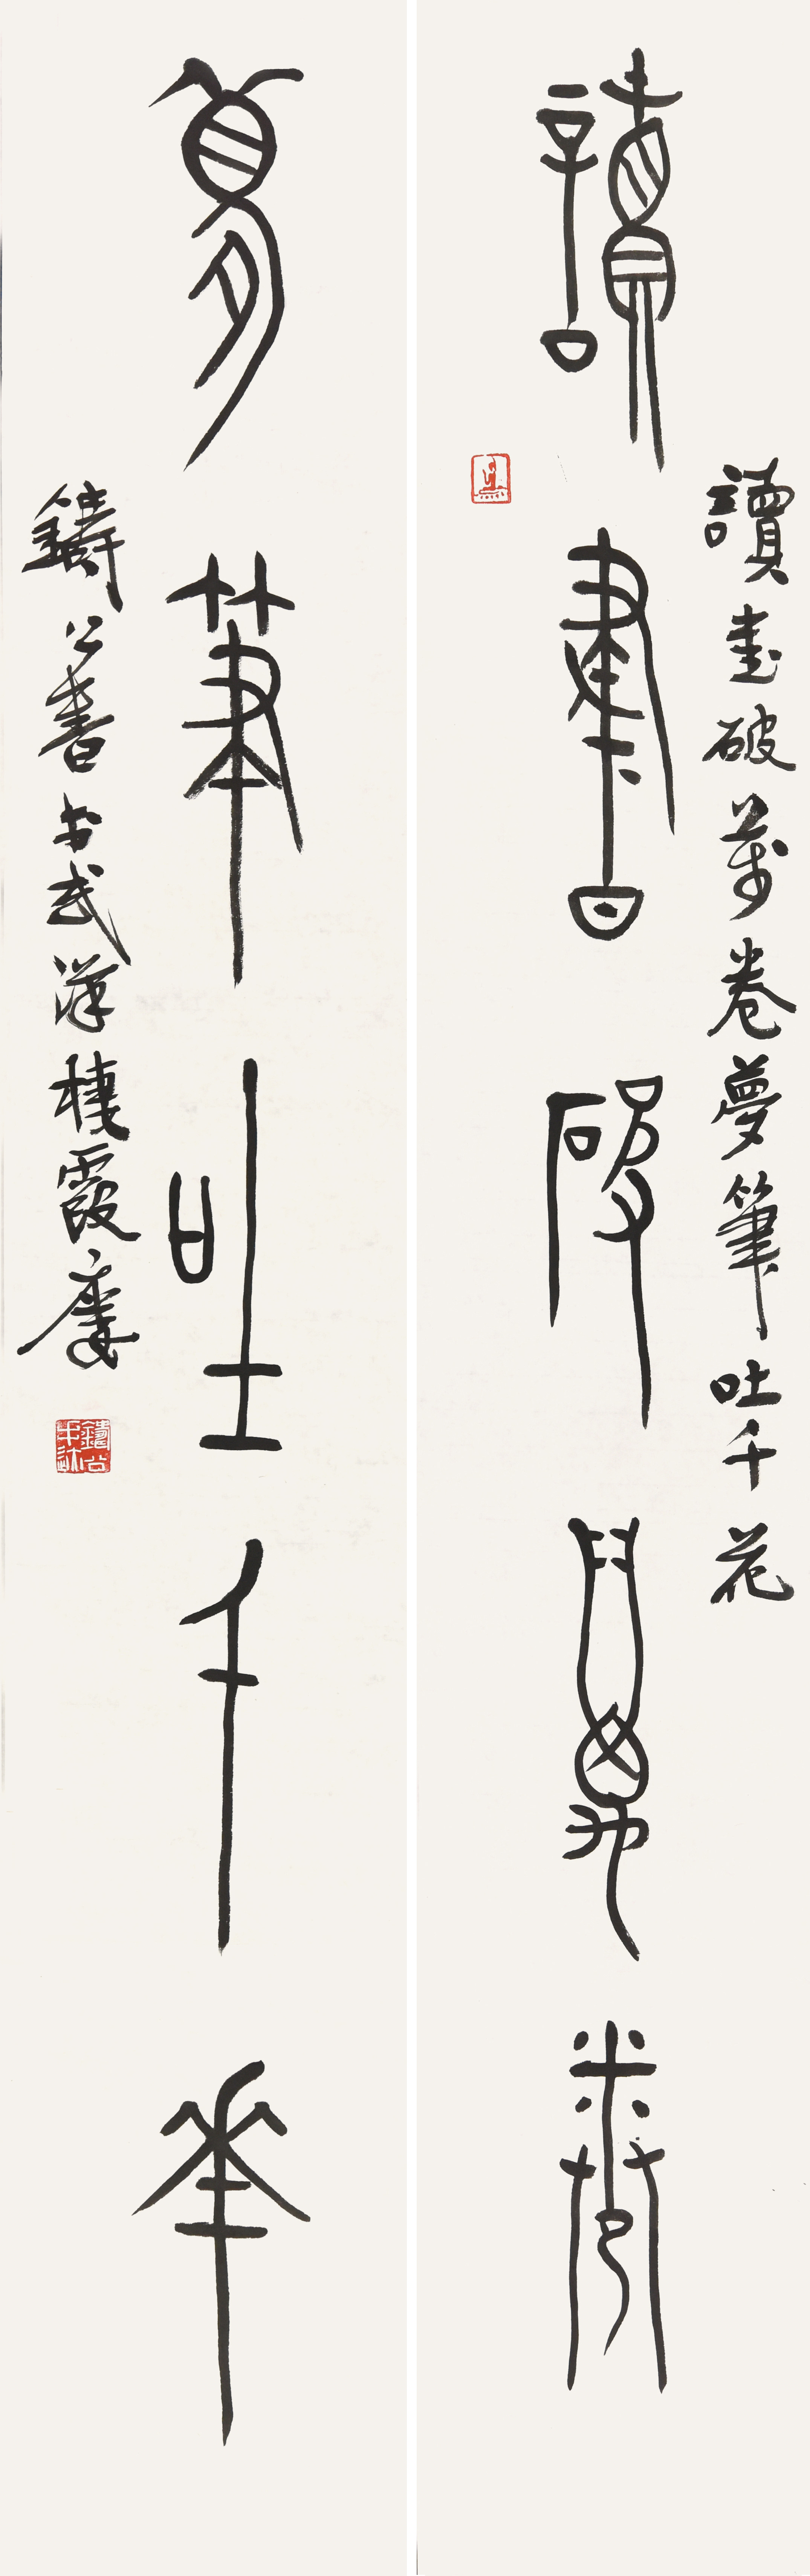 讀書破萬卷夢筆吐千花
讀書破萬卷
夢筆吐千華
鑄公書於武漢棲霞廔
鑄公